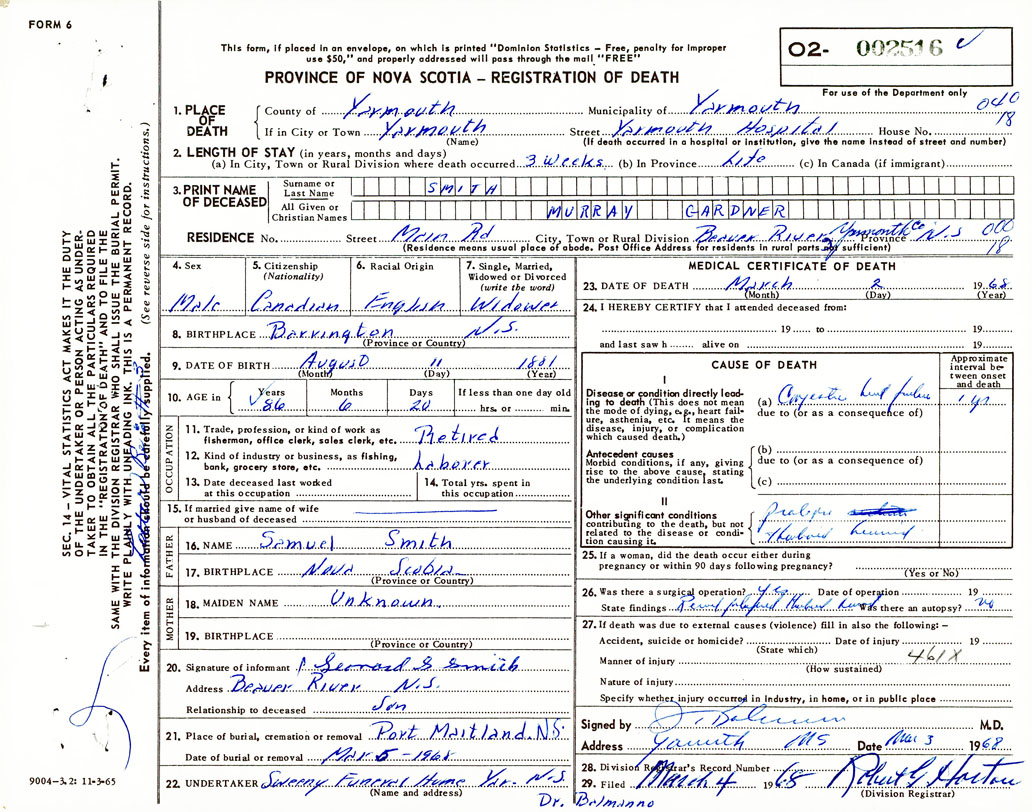 FORM 6
This form, if placed in an envelope, on which is printed "Dominion Statistics – Free, penalty for improper
use $50," and properly addressed will pass through the mail "FREE"
O2- 002516
PROVINCE OF NOVA SCOTIA – REGISTRATION OF DEATH
For use of the Department only
1. PLACE OF DEATH
County of Yarmouth Municipality of Yarmouth 040
If in City or Town Yarmouth Street Yarmouth Hospital House No. 18
(Name) (If death occurred in a hospital or institution, give the name instead of street and number)
2. LENGTH OF STAY (in years, months and days)
(a) In City, Town or Rural Division where death occurred 3 weeks (b) In Province Life (c) In Canada (if immigrant)
3. PRINT NAME OF DECEASED
Surname or Last Name SMITH
All Given or Christian Names MURRAY GARDNER
RESIDENCE No. Street Main Rd City, Town or Rural Division Beaver River Yarmouth Co Province N.S 000
(Residence means usual place of abode. Post Office Address for residents in rural parts not sufficient) 18
4. Sex
Male
5. Citizenship
(Nationality)
Canadian
6. Racial Origin
English
7. Single, Married,
Widowed or Divorced
(write the word)
Widower
8. BIRTHPLACE Barrington N.S.
(Province or Country)
9. DATE OF BIRTH August 11 1881
(Month) (Day) (Year)
10. AGE in
Years Months Days If less than one day old
86 6 20 hrs. or min.
OCCUPATION
11. Trade, profession, or kind of work as
fisherman, office clerk, sales clerk, etc. Retired
12. Kind of industry or business, as fishing,
bank, grocery store, etc. Laborer
13. Date deceased last worked
at this occupation
14. Total yrs. spent in
this occupation
15. If married give name of wife
or husband of deceased
FATHER
16. NAME Samuel Smith
17. BIRTHPLACE Nova Scotia
(Province or Country)
MOTHER
18. MAIDEN NAME Unknown
19. BIRTHPLACE
(Province or Country)
20. Signature of informant Leonard G Smith
Address Beaver River N.S.
Relationship to deceased Son
21. Place of burial, cremation or removal Port Maitland. NS.
Date of burial or removal Mar 5 - 1968
22. UNDERTAKER Sweeny Funeral Home Yar. N.S.
(Name and address)
MEDICAL CERTIFICATE OF DEATH
23. DATE OF DEATH March 2 1968
(Month) (Day) (Year)
24. I HEREBY CERTIFY that I attended deceased from:
19 to 19
and last saw h alive on 19
CAUSE OF DEATH
Approximate
interval be-
tween onset
and death
I
Disease or condition directly lead-
ing to death (This does not mean
the mode of dying, e.g., heart fail-
ure, asthenia, etc. It means the
disease, injury, or complication
which caused death.)
(a) Congestive heart failure 1 yr
due to (or as a consequence of)
Antecedent causes
Morbid conditions, if any, giving
rise to the above cause, stating
the underlying condition last.
(b)
due to (or as a consequence of)
(c)
II
Other significant conditions
contributing to the death, but not
related to the disease or condi-
tion causing it.
25. If a woman, did the death occur either during
pregnancy or within 90 days following pregnancy?
(Yes or No)
26. Was there a surgical operation? Yes Date of operation 19
State findings Was there an autopsy? no
27. If death was due to external causes (violence) fill in also the following: –
Accident, suicide or homicide? Date of injury 19
(State which)
Manner of injury 461X
(How sustained)
Nature of injury
Specify whether injury occurred in industry, in home, or in public place
Signed by M.D.
Address Date Mar 3 1968
28. Division Registrar's Record Number
29. Filed March 4 1968 Robert G Horton
(Division Registrar)
Dr. Balmanno
SEC. 14 – VITAL STATISTICS ACT MAKES IT THE DUTY
OF THE UNDERTAKER OR PERSON ACTING AS UNDER-
TAKER TO OBTAIN ALL THE PARTICULARS REQUIRED
IN THE "REGISTRATION OF DEATH" AND TO FILE THE
SAME WITH THE DIVISION REGISTRAR WHO SHALL ISSUE THE BURIAL PERMIT.
WRITE PLAINLY WITH UNFADING INK. THIS IS A PERMANENT RECORD.
Every item of information should be carefully supplied. (See reverse side for instructions.)
9004-3.2: 11-3-65